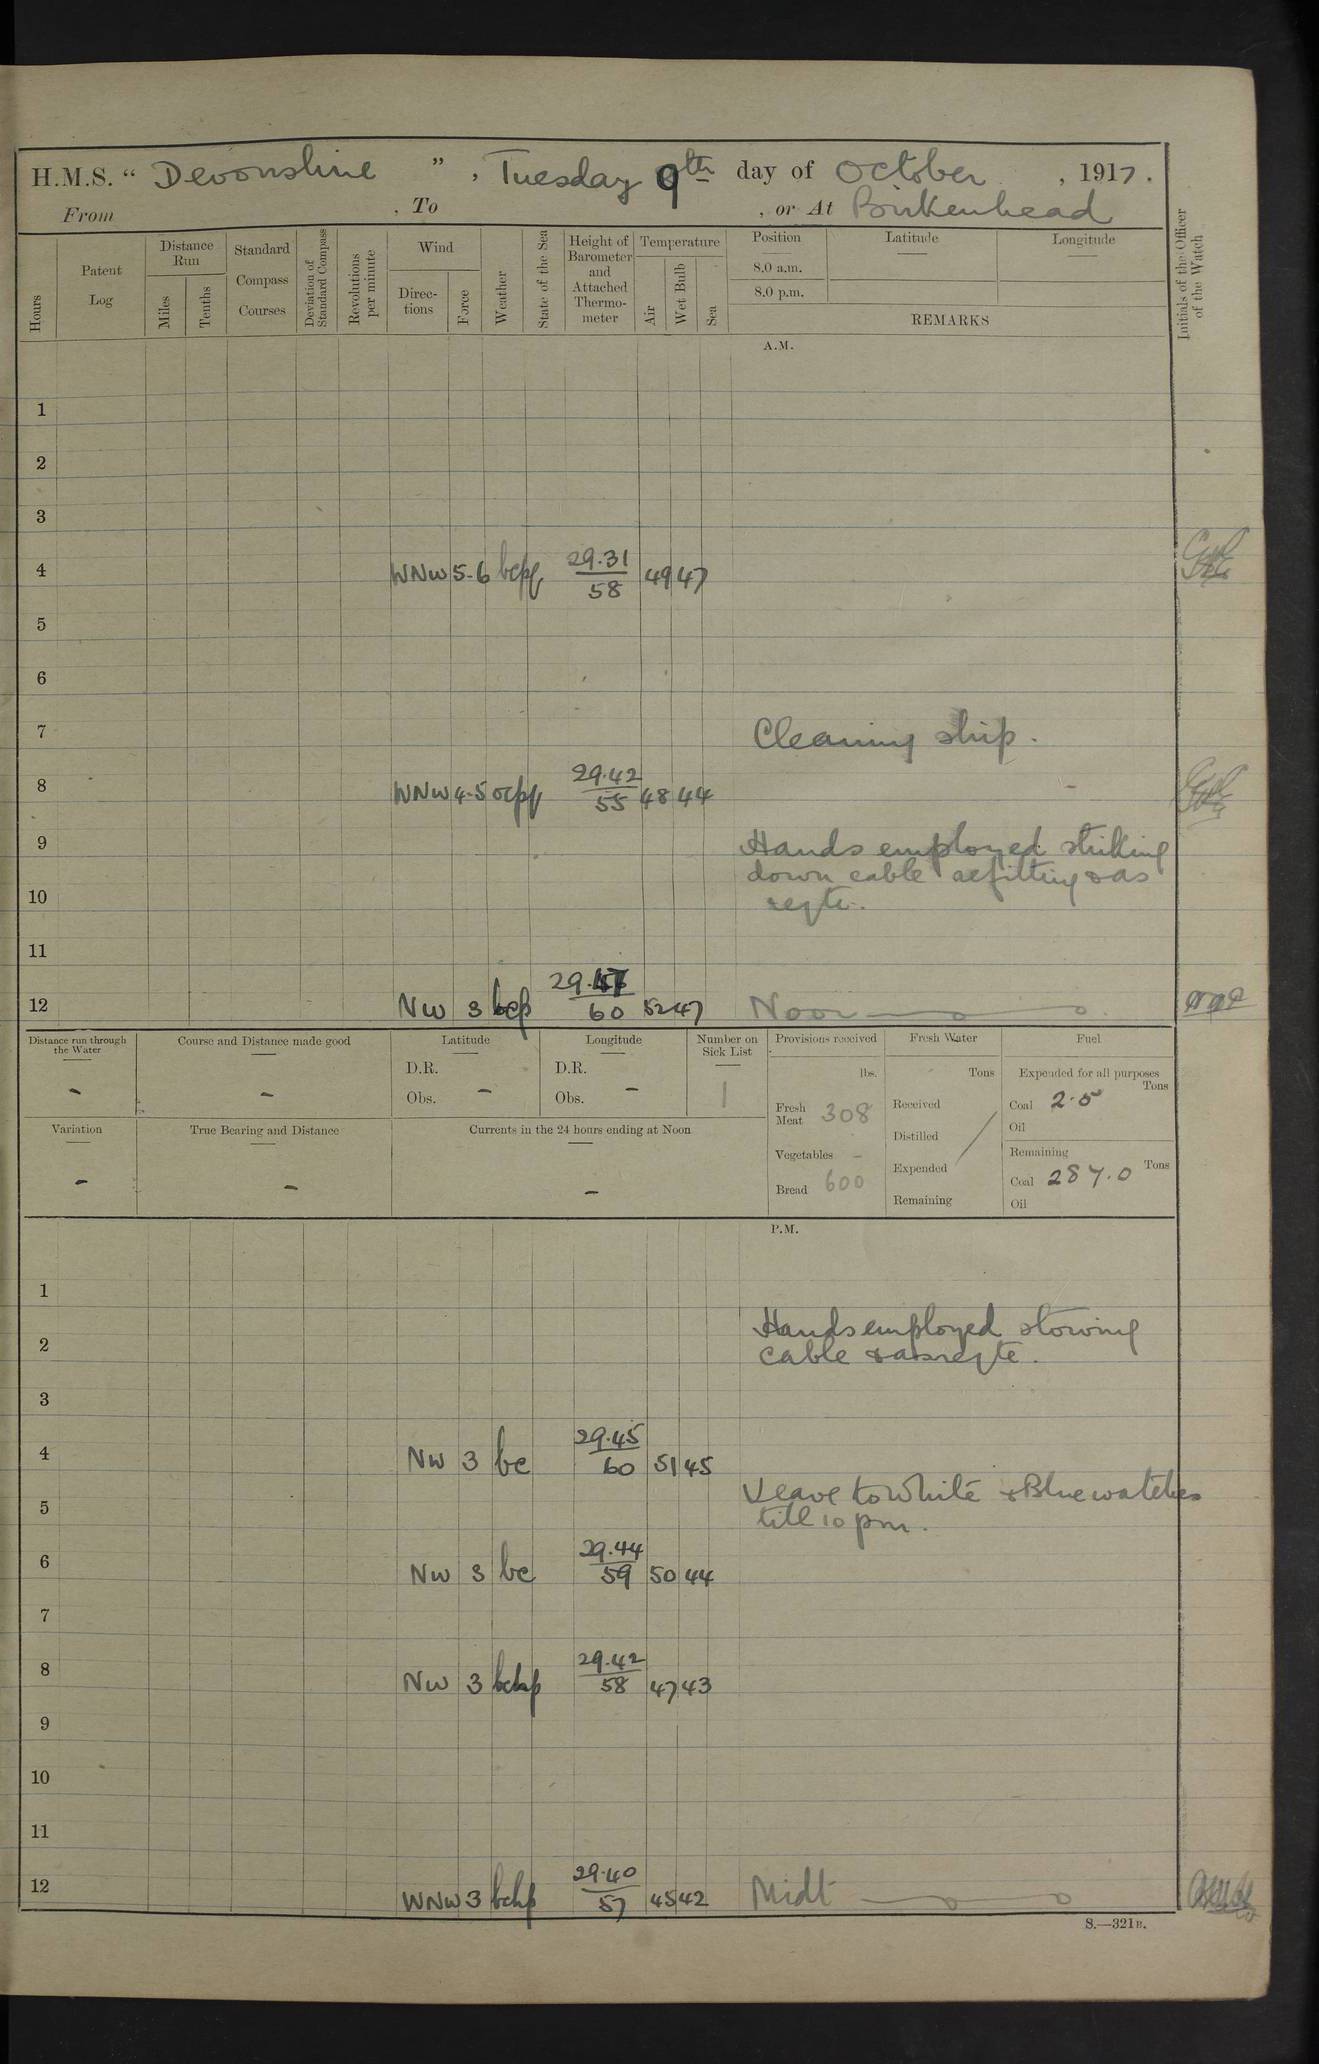 H.M.S. " Devonshire " , Tuesday 9th day of October , 1917.
From , To , or At Birkenhead
Hours
Patent Log
Distance Run
Miles
Tenths
Standard Compass Courses
Deviation of Standard Compass
Revolutions per minute
Wind
Direc-tions
Force
Weather
State of the Sea
Height of Barometer and Attached Thermo-meter
Temperature
Air
Wet Bulb
Sea
Position
8.0 a.m.
8.0 p.m.
Latitude
Longitude
REMARKS
Initials of the Officer of the Watch
A.M.
1
2
3
4 WNW 5-6 bcpq 29.31 58 49 47
5
6
7 Cleaning ship.
8 WNW 4-5 ocpq 29.42 55 48 44
9 Hands employed striking
down cable refitting & as
10 reqte.
11
12 NW 3 bcp 29. 60 52 47 Noon
Distance run through the Water
-
Course and Distance made good
-
Latitude
D.R.
Obs. -
Longitude
D.R.
Obs. -
Number on Sick List
1
Provisions received
lbs.
Fresh Meat 308
Vegetables -
Bread 600
Fresh Water
Tons
Received
Distilled
Expended
Remaining
Fuel
Expended for all purposes
Tons
Coal 2.5
Oil
Remaining
Tons
Coal 287.0
Oil
Variation
-
True Bearing and Distance
-
Currents in the 24 hours ending at Noon
-
P.M.
1
Hands employed stowing
2 cable & as reqte.
3
4 NW 3 bc 29.45 60 51 45
Leave to White & Blue watches
5 till 10 pm.
6 NW 3 bc 29.44 59 50 44
7
8 NW 3 bchp 29.42 58 47 43
9
10
11
12 WNW 3 bchp 29.40 57 45 42 Midt
S.—321B.